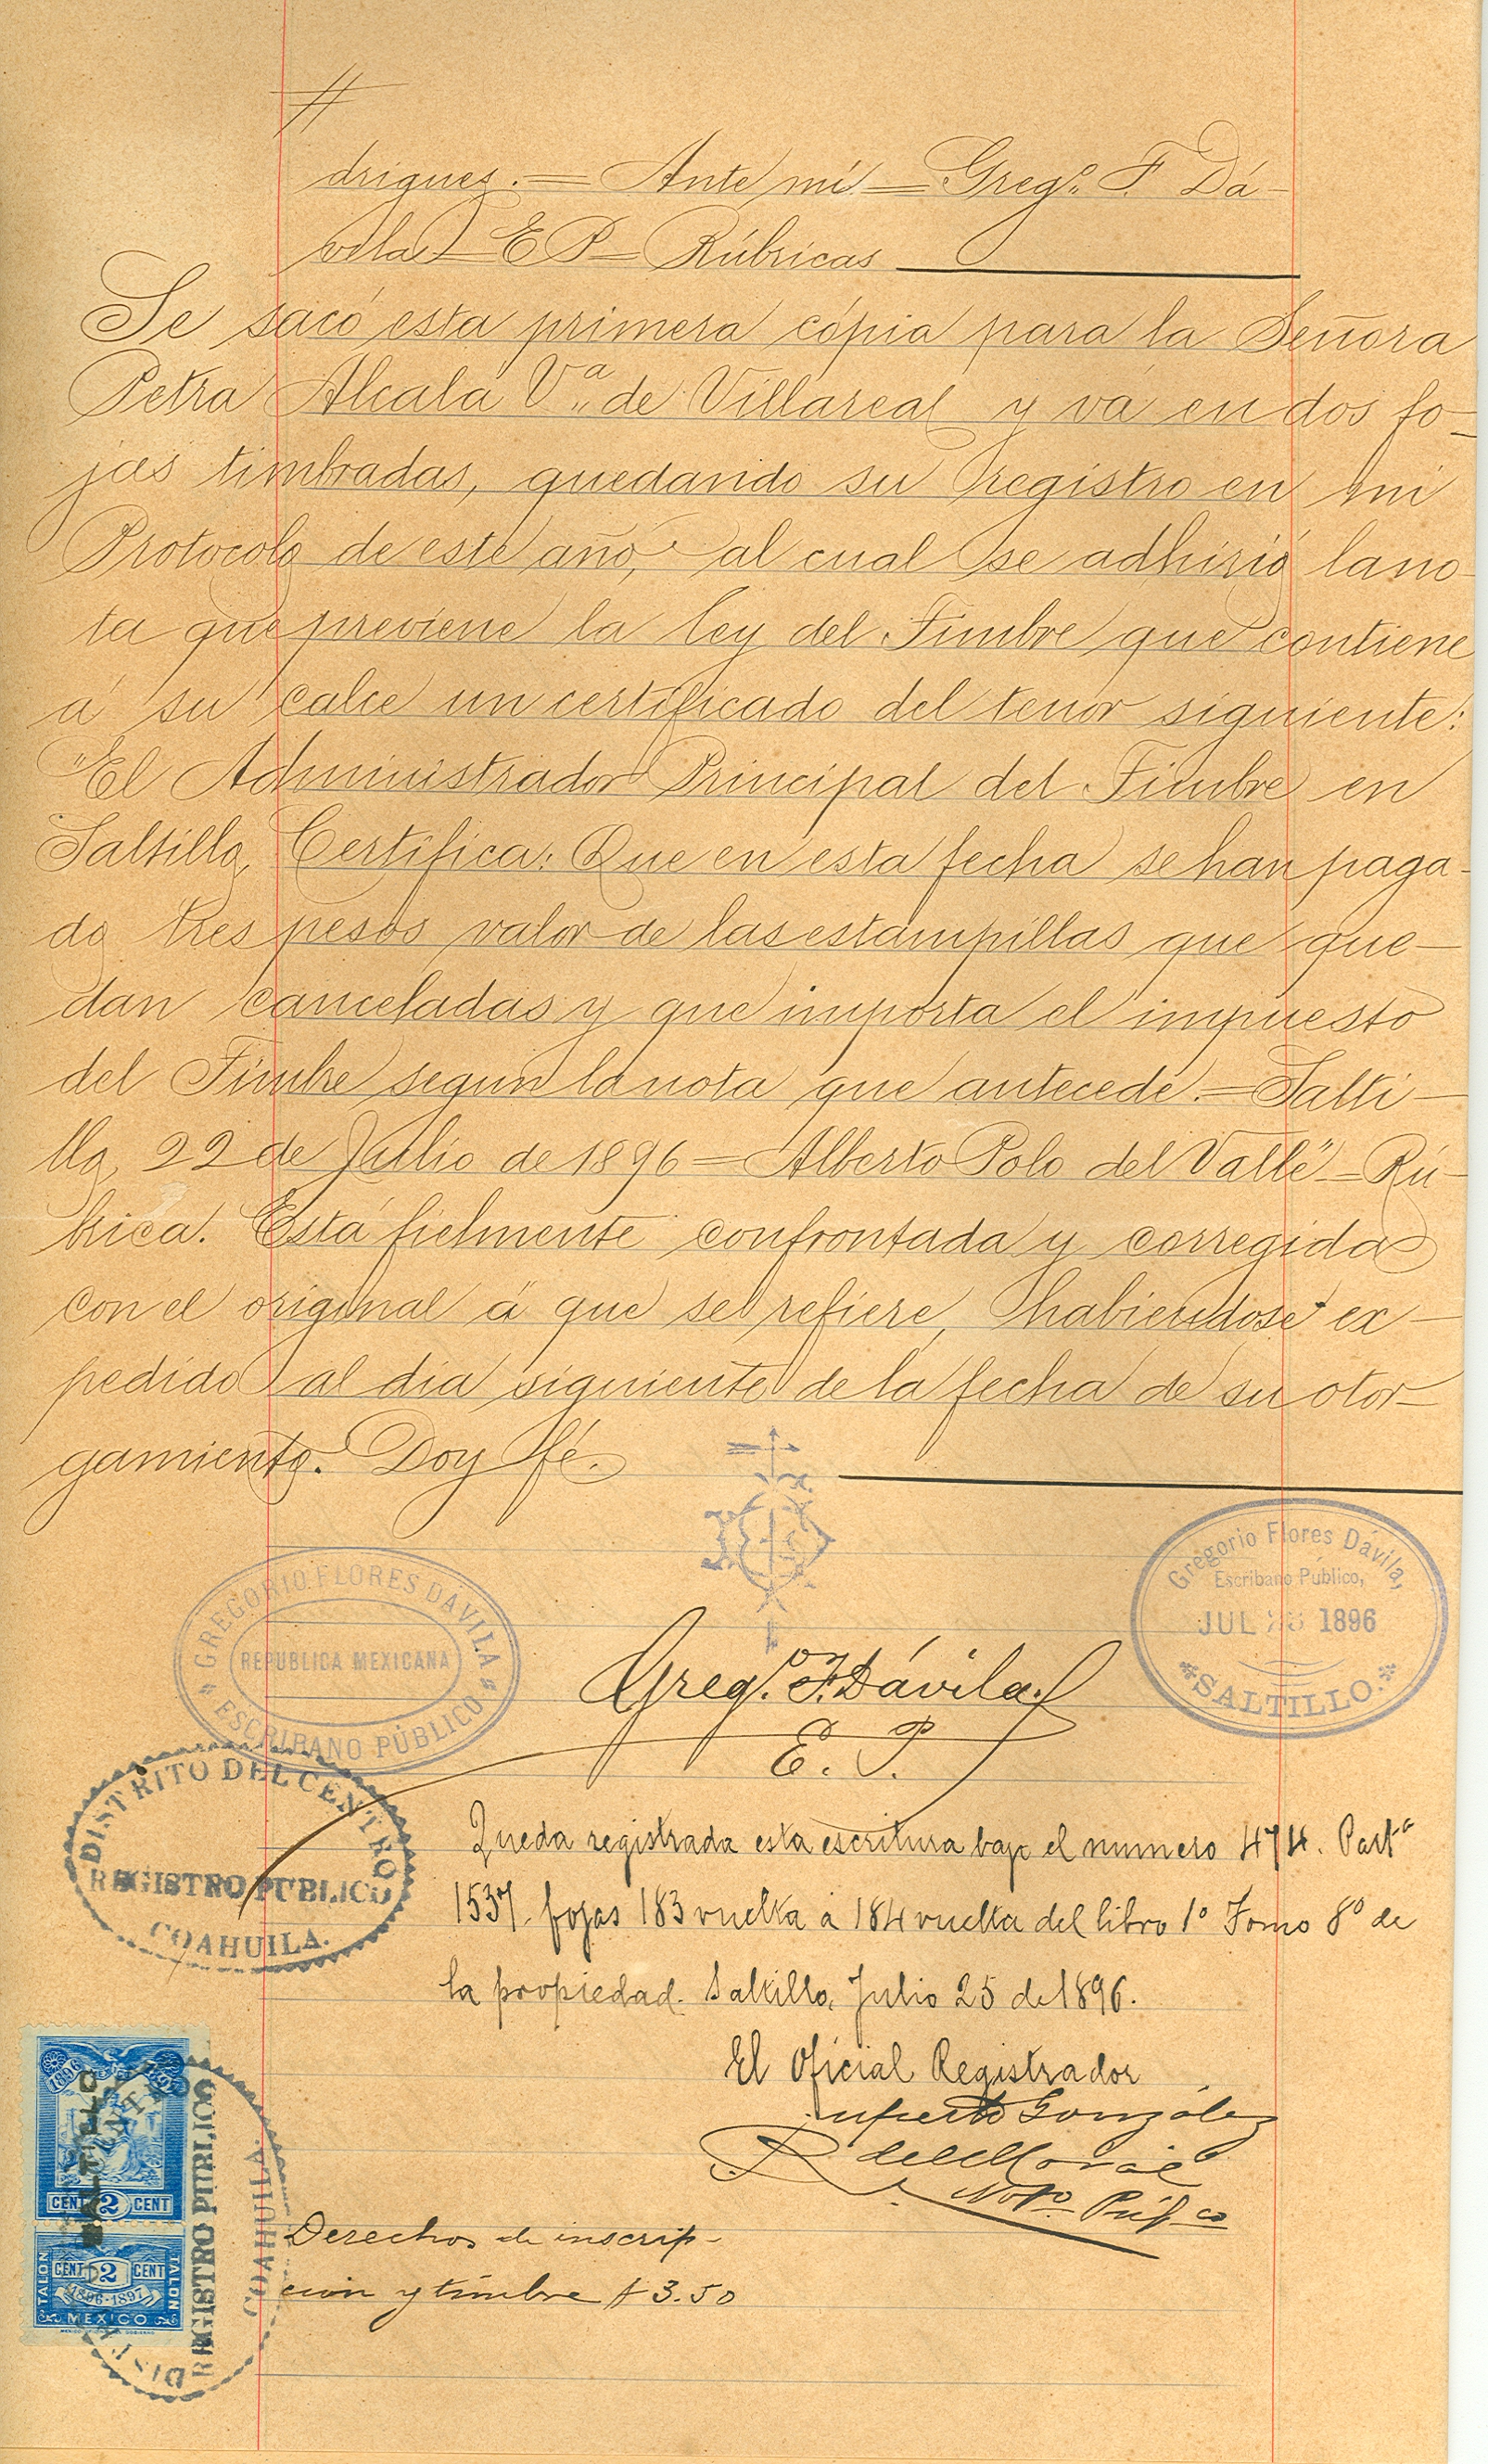 drigues.=Ante mí=Greg.º F. Dá-
vila=E P=Rúbricas
Se sacó esta primera cópia para la Señora
Petra Alcalá V.ª de Villareal y vá en dos fo-
jas timbradas, quedando su registro en mi
Protocolo de este año, al cual se adhirió la no-
ta que previene la ley del Timbre que contiene
á su calce un certificado del tenor siguiente:
"El Administrador Principal del Timbre en
Saltillo, Certifica: Que en esta fecha se han paga-
do tres pesos valor de las estampillas que que-
dan canceladas y que importa el impuesto
del Timbre segun la nota que antecede.=Salti-
llo, 22 de Jullio de 1896=Alberto Polo del Valle"=Rú-
brica. Está fielmente confrontada y corregida
con el original á que se refiere, habiendose ex-
pedido al dia siguiente de la fecha de su otor-
gamiento. Doy fé.
GREGORIO FLORES DÁVILA
REPUBLICA MEXICANA
ESCRIBANO PÚBLICO
Gregorio Flores Dávila,
Escribano Público,
JUL 1896
SALTILLO.
Greg.º F. Dávila.
E. P.
DISTRITO DEL CENTRO
REGISTRO PUBLICO
COAHUILA.
Queda registrada esta escritura bajo el numero 474. Part.ª
1537. fojas 183 vuelta á 184 vuelta del libro 1º Tomo 8º de
la propiedad. Saltillo, Julio 25 de 1896.
El Oficial Registrador
Ruperto González
del Moral
Not.º Púb.co
Derechos de inscrip-
cion y timbre $ 3.50
1896
SALTILLO
CENT 2 CENT
TALON CENT 2 CENT TALON
1896-1897
MEXICO
REGISTRO PUBLICO
COAHUILA.